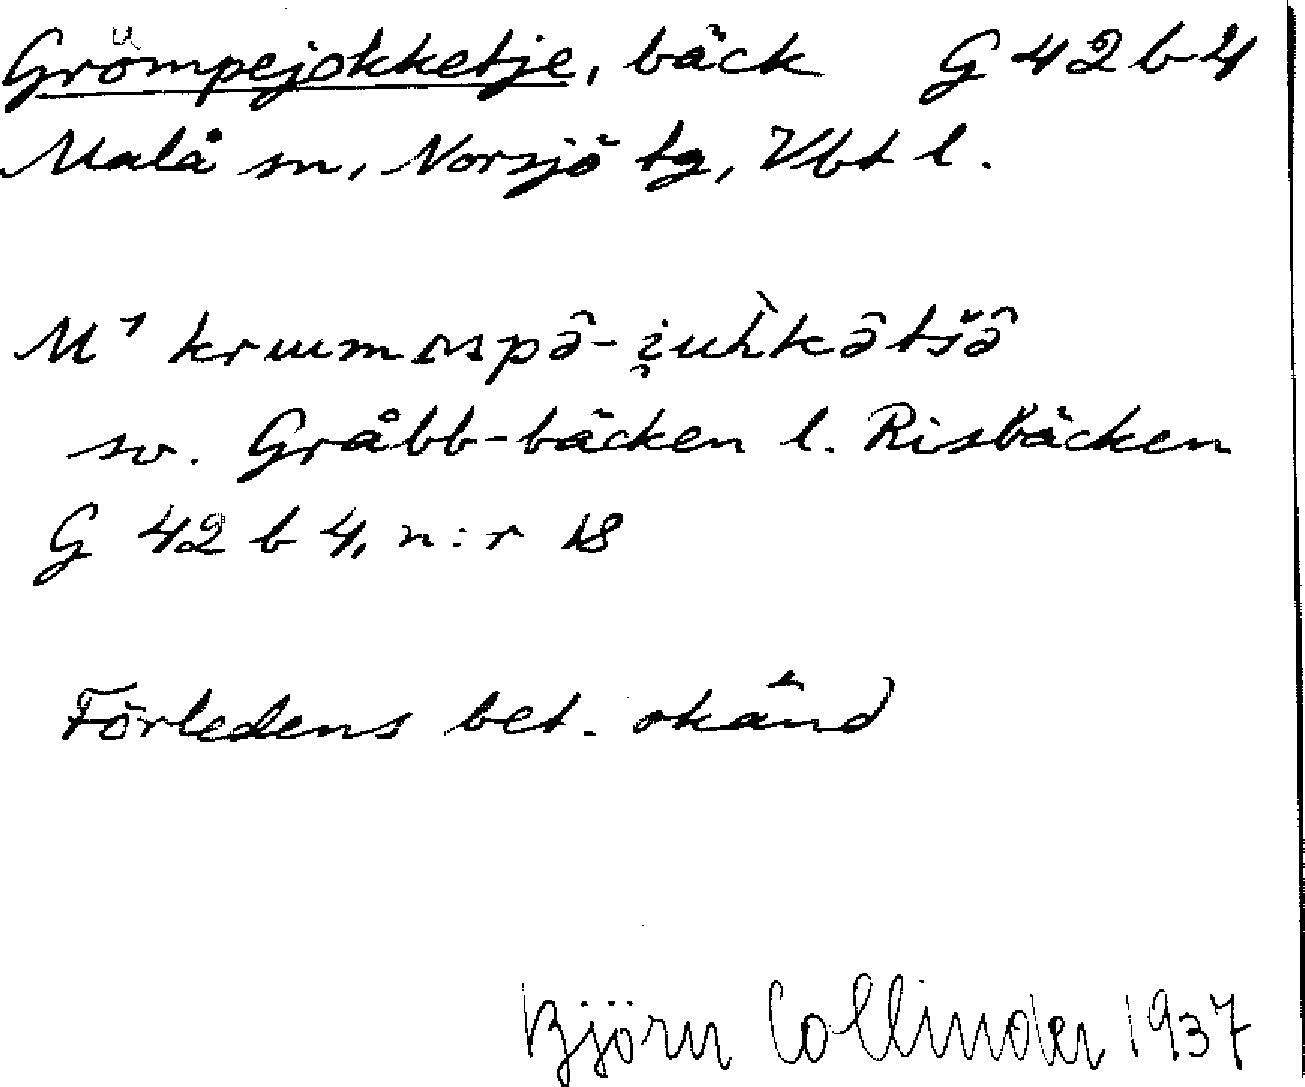 Grömpejokketje, bäck G 42 b 4
Malå sn, Norsjö tg, Vbt l.
sv. Gråbb-bäcken l. Risbäcken
G 42 b 4, n:r 18
Förledens bet. okänd
Björn Collinder 1937